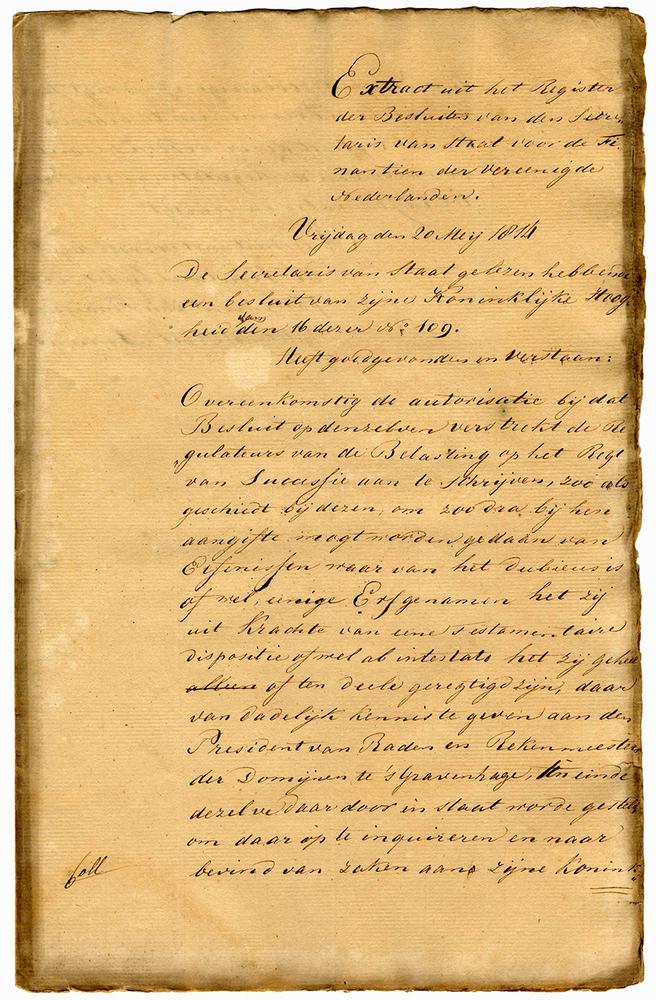 Extract uit het Register
der Besluiten van den Secre,,
taris van Staat voor de Fi,
nantien der vereenigde
Nederlanden.
Vrijdag den 20 Meij 1814
De Secretaris van Staat gelezen hebbende
een besluit van zijne Koninklijke Hoog
heid van den 16 dezer No. 109.
Heeft goedgevonden en verstaan:
Overeenkomstig de autorisatie bij dat
Besluit op denzelven verstrekt de Re
gulateurs van de Belasting op het Regt
van Successie aan te schrijven, zoo als
geschiedt bij dezen, om zoodra bij hen
aangifte mogt worden gedaan van
Erfenissen waar van het dubieus is
of wel, eenige Erfgenamen het zij
uit krachte van eene Testamentaire
dispositie of wel ab intestato het zij geheel
alleen of ten deele geregtigd zijn, daar
van dadelijk kennis te geven aan den
President van Raden en Rekenmeesteren
der Domijnen te 's Gravenhage, ten einde
dezelve daar door in staat worde gesteld
om daar op te inquireren en naar
bevind van zaken aan zijne Konink,,
Coll